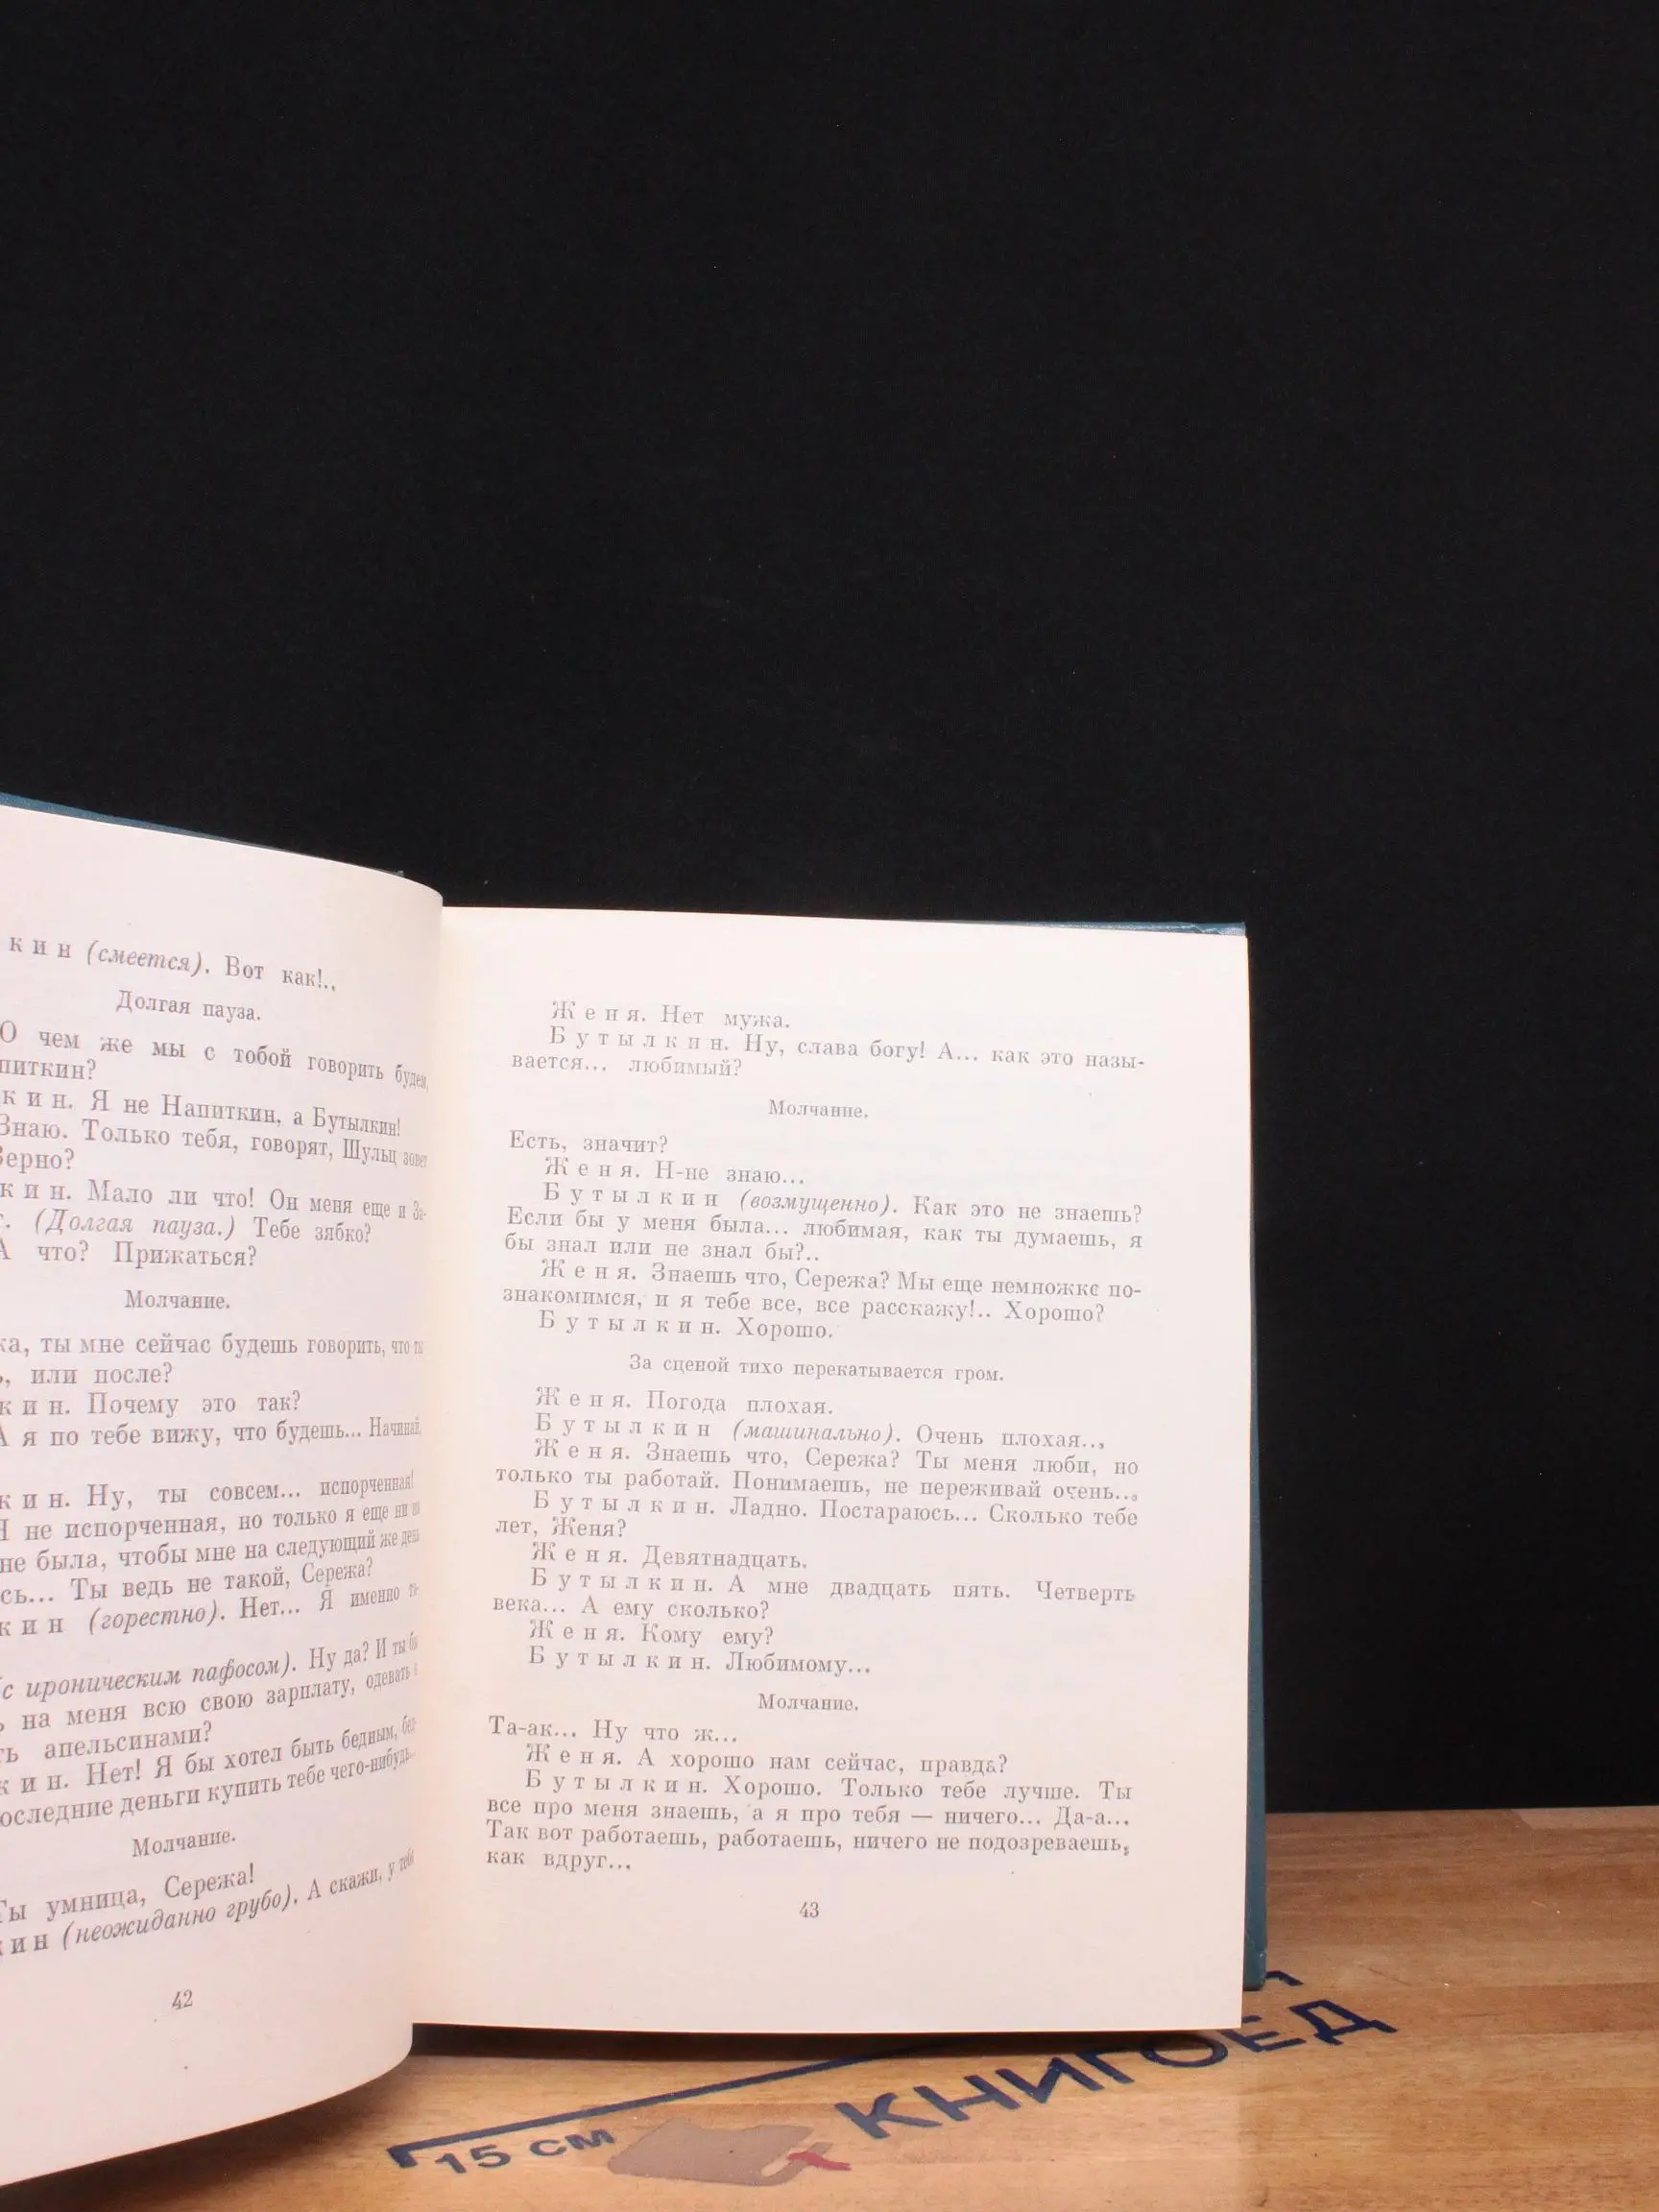 кин (смеется). Вот как!..
Долгая пауза.
О чем же мы с тобой говорить будем,
питкин?
кин. Я не Напиткин, а Бутылкин!
Знаю. Только тебя, говорят, Шульц зовет
Верно?
кин. Мало ли что! Он меня еще и За-
(Долгая пауза.) Тебе зябко?
А что? Прижаться?
Молчание.
ка, ты мне сейчас будешь говорить, что
или после?
кин. Почему это так?
А я по тебе вижу, что будешь... Начинай,
кин. Ну, ты совсем... испорченная!
Я не испорченная, но только я еще ни
не была, чтобы мне на следующий же день
сь... Ты ведь не такой, Сережа?
кин (горестно). Нет... Я именно та-
(с ироническим пафосом). Ну да? И ты
на меня всю свою зарплату, одевать
ть апельсинами?
кин. Нет! Я бы хотел быть бедным, бед-
последние деньги купить тебе чего-нибудь...
Молчание.
Ты умница, Сережа!
кин (неожиданно грубо). А скажи, у тебя
42
Женя. Нет мужа.
Бутылкин. Ну, слава богу! А... как это назы-
вается... любимый?
Молчание.
Есть, значит?
Женя. Н-не знаю...
Бутылкин (возмущенно). Как это не знаешь?
Если бы у меня была... любимая, как ты думаешь, я
бы знал или не знал бы?..
Женя. Знаешь что, Сережа? Мы еще немножко по-
знакомимся, и я тебе все, все расскажу!.. Хорошо?
Бутылкин. Хорошо.
За сценой тихо перекатывается гром.
Женя. Погода плохая.
Бутылкин (машинально). Очень плохая...
Женя. Знаешь что, Сережа? Ты меня люби, но
только ты работай. Понимаешь, не переживай очень...
Бутылкин. Ладно. Постараюсь... Сколько тебе
лет, Женя?
Женя. Девятнадцать.
Бутылкин. А мне двадцать пять. Четверть
века... А ему сколько?
Женя. Кому ему?
Бутылкин. Любимому...
Молчание.
Та-ак... Ну что ж...
Женя. А хорошо нам сейчас, правда?
Бутылкин. Хорошо. Только тебе лучше. Ты
все про меня знаешь, а я про тебя — ничего... Да-а...
Так вот работаешь, работаешь, ничего не подозреваешь,
как вдруг...
43
КНИГОЕД
15 СМ